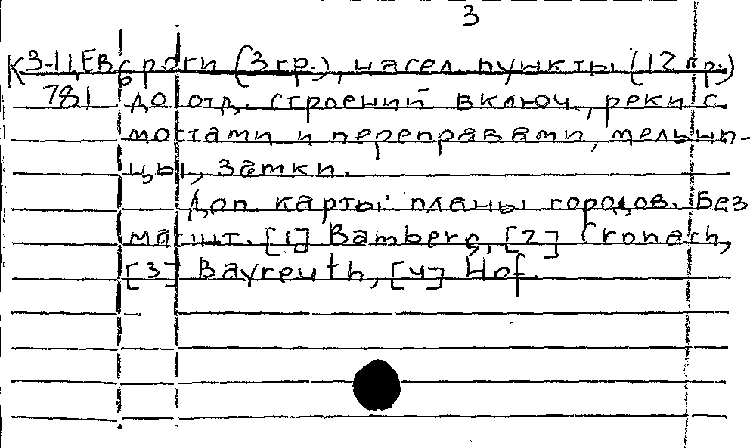 3
К 3-11,Ев дороги (3 гр.), насел. пункты (12 гр.)
6
781 до отд. строений включ., реки с
мостами и переправами, мельни-
цы, замки.
Доп. карты: планы городов. Без
масшт. [1] Bamberg, [2] Cronach,
[3] Bayreuth, [4] Hof.